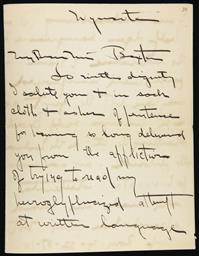 My Dear Miss Baxter
In sinter dignity
I salute you & in sack
cloth & ashes of penitence
for having so long delivered
you from the affliction
of trying to read my
hieroglyphicized attempt
at written language